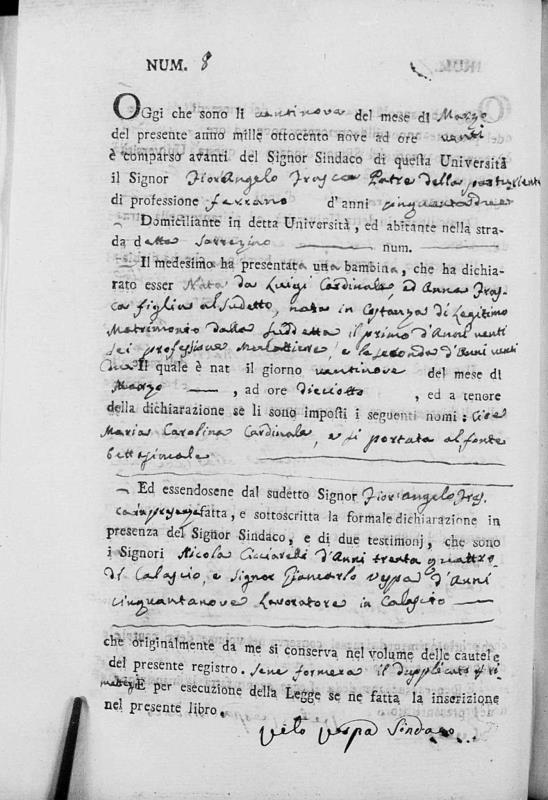 NUM. 8
OGgi che sono li ventinove del mese di Marzo
del presente anno mille ottocento nove ad ore venti
è comparso avanti del Signor Sindaco di questa Università
il Signor Fiorangelo Frasca Patre della
di professione ferraro d'anni cinquantadue
Domiciliante in detta Università, ed abitante nella stra-
da detta Sarrezino num.
Il medesimo ha presentata una bambina, che ha dichia-
rato esser Nata da Luigi Cardinale, ed Anna Fras-
ca figlia al Sudetto, nata in Costanza di Legitimo
Matrimonio dalla suddetta il primo d'Anni venti
sei professione, e la seconda d'Anni venti
due Il quale è nat il giorno ventinove del mese di
Marzo, ad ore dieciotto, ed a tenore
della dichiarazione se li sono imposti i seguenti nomi: Cioè
Maria Carolina Cardinale, e si portata al fonte
battesimale
Ed essendosene dal sudetto Signor Fiorangelo Fras-
ca fatta, e sottoscritta la formale dichiarazione in
presenza del Signor Sindaco, e di due testimonj, che sono
i Signori Nicola Cicciarelli d'Anni trenta quattro
di Calascio, e Signor Giancarlo Vespa d'Anni
cinquantanove Lavoratore in Calascio
che originalmente da me si conserva nel volume delle cautele
del presente registro. Sene formerà il dupplicato
E per esecuzione della Legge se ne fatta la inserizione
nel presente libro.
Vespa Sindaco